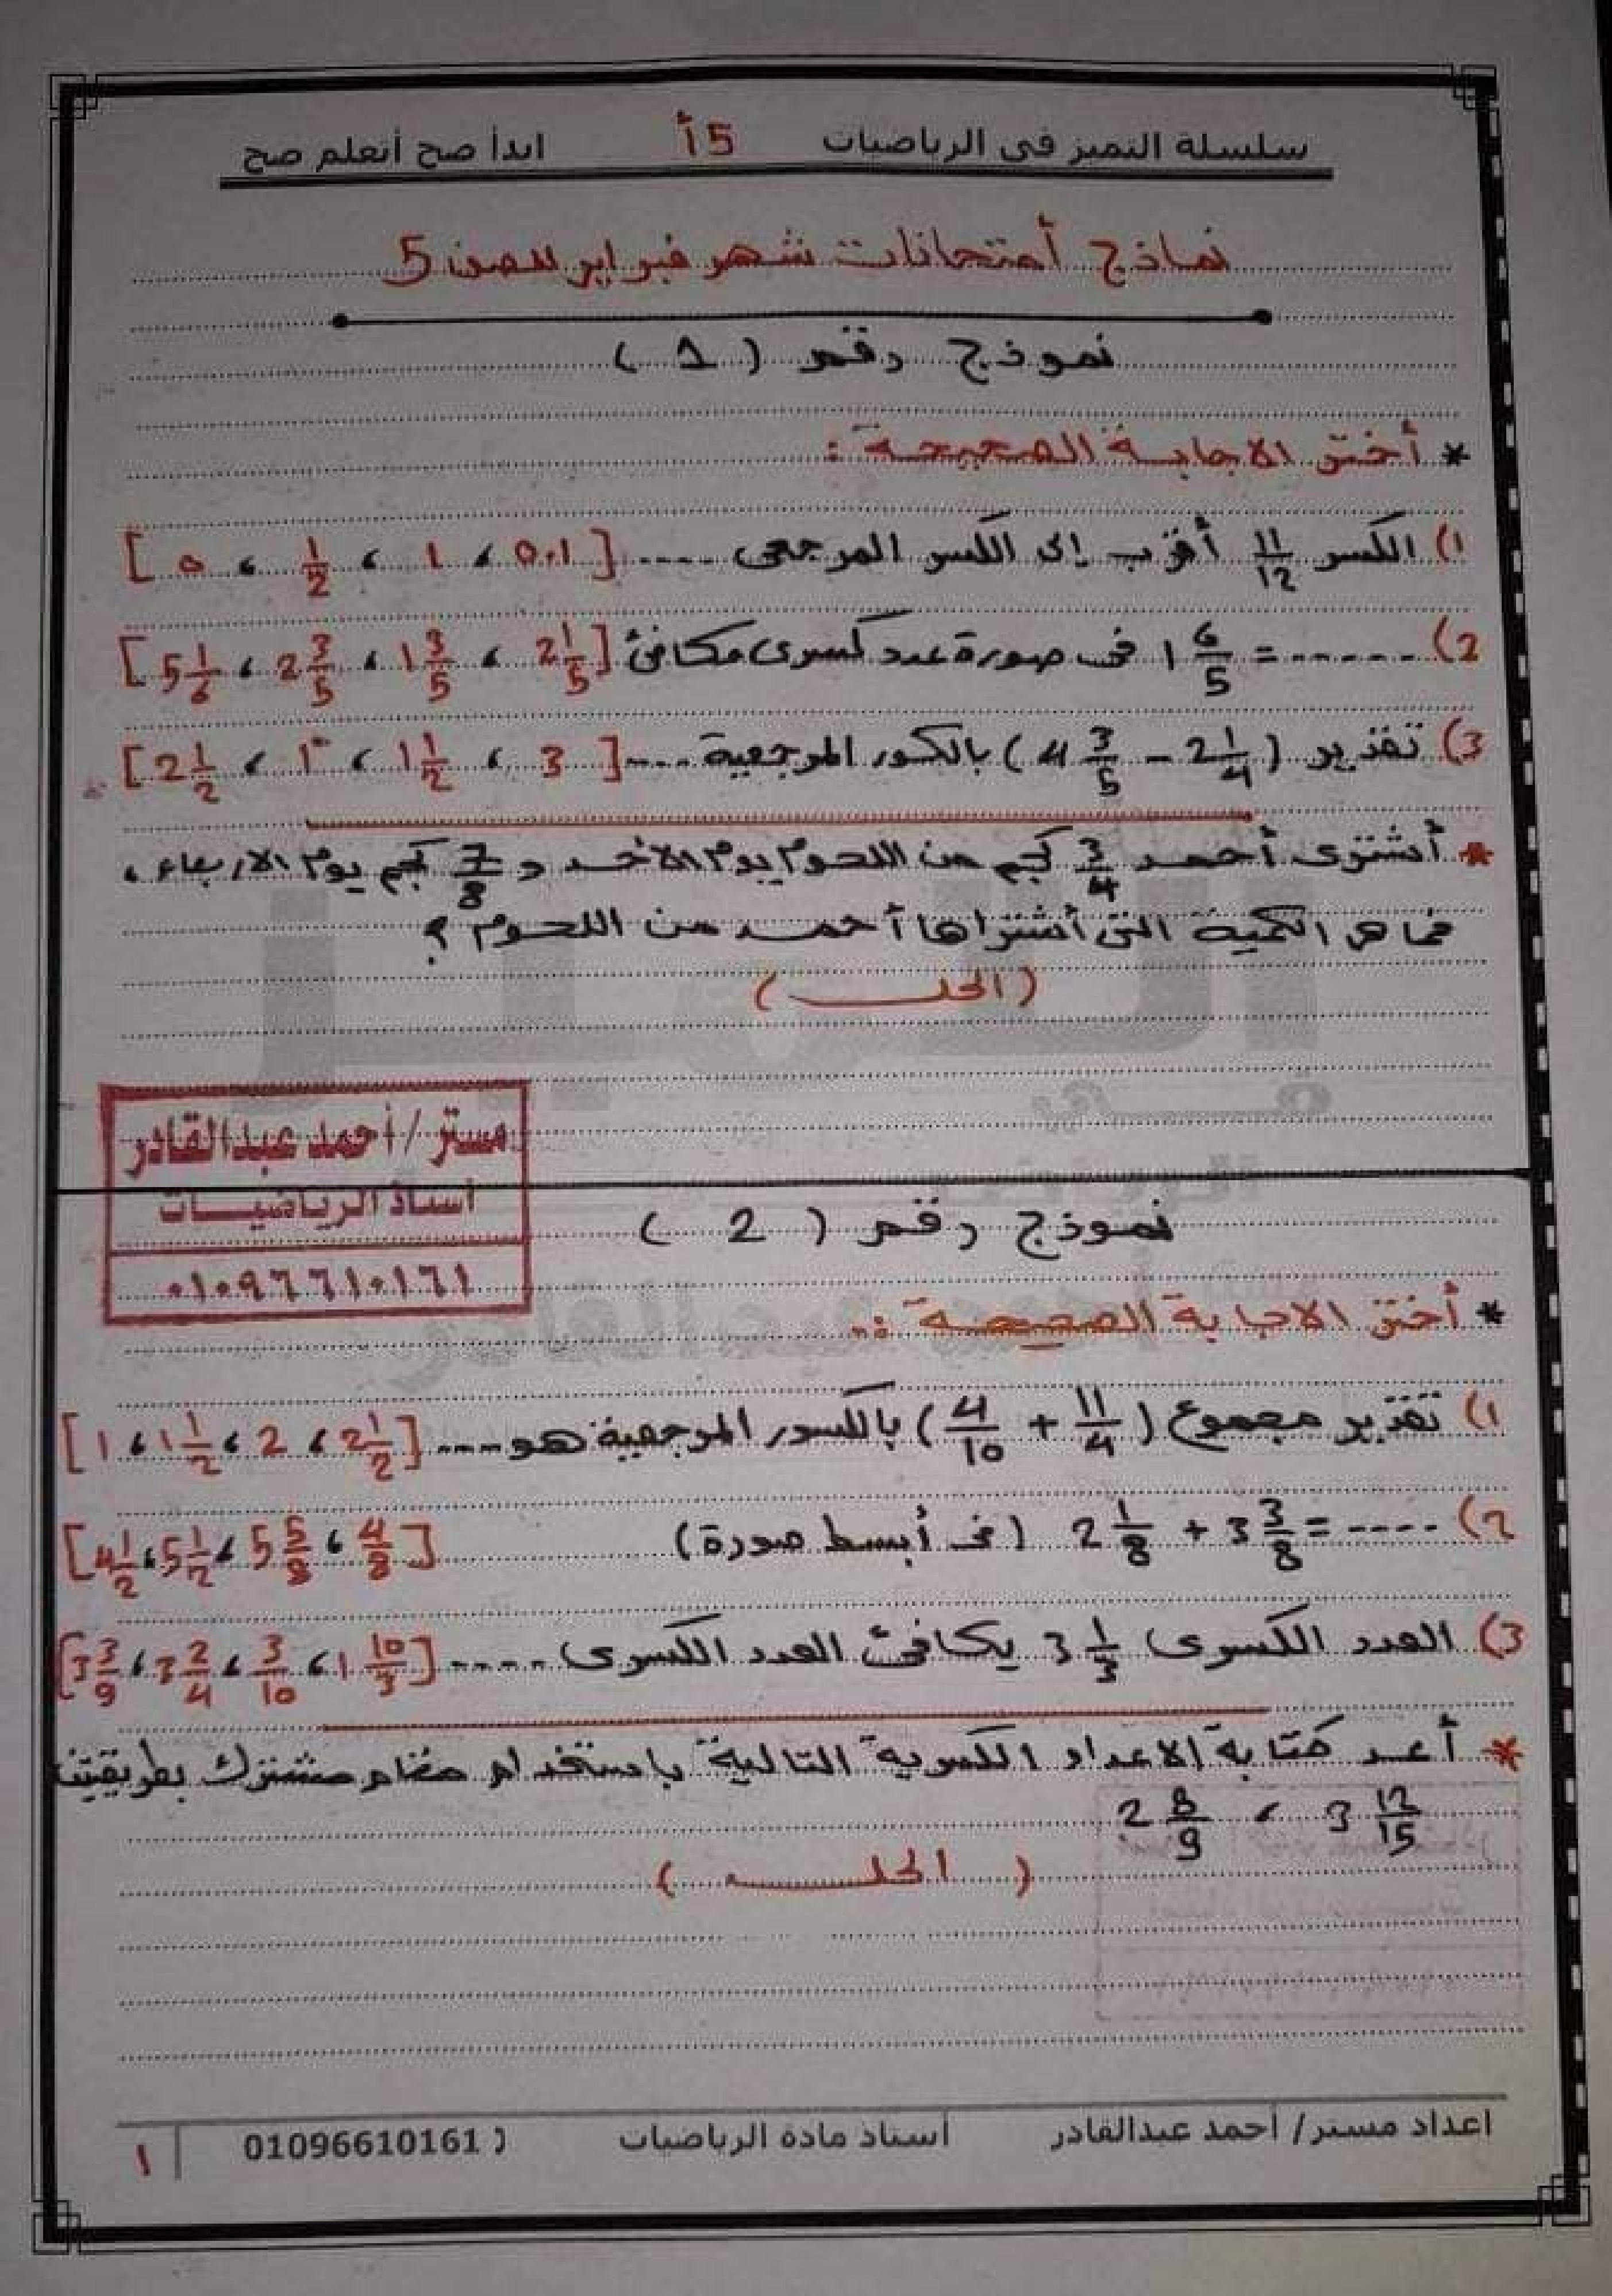 سلسلة التميز فى الرياضيات 5أ ابدأ صح أتعلم صح
نماذج أمتحانات شهر فبراير للصف 5
نموذج رقم ( 1 )
* أختر الاجابة الصحيحة :
1) الكسر 11/12 أقرب إلى الكسر المرجعى ---- [ 0.1 ، 1 ، 1/2 ، 0 ]
2) ------ = 1 6/5 فى صورة عدد كسرى مكافئ [ 2 1/5 ، 1 3/5 ، 2 3/5 ، 5 1/6 ]
3) تقدير ( 4 3/5 - 2 1/4 ) بالكسور المرجعية ---- [ 3 ، 1 1/2 ، 1 ، 2 1/2 ]
* أشترى أحمد 3/4 كجم من اللحوم يوم الأحد و 7/8 كجم يوم الاربعاء ،
فما هى الكمية التى أشتراها أحمد من اللحوم ؟
( الحل )
مستر / أحمد عبدالقادر
أستاذ الرياضيات
٠١٠٩٦٦١٠١٦١
نموذج رقم ( 2 )
* أختر الاجابة الصحيحة :
1) تقدير مجموع ( 4/10 + 11/4 ) بالكسور المرجعية هو ---- [ 2 1/2 ، 2 ، 1 1/2 ، 1 ]
2) 2 1/8 + 3 3/8 = ---- ( فى أبسط صورة ) [ 4/8 ، 5 5/8 ، 5 1/2 ، 4 1/2 ]
3) العدد الكسرى 3 1/3 يكافئ العدد الكسرى ---- [ 1 10/3 ، 3/10 ، 3 2/4 ، 3 3/9 ]
* أعد كتابة الاعداد الكسرية التالية باستخدام مقام مشترك بطريقتين
2 8/9 ، 3 12/15
( الحل )
اعداد مستر/ أحمد عبدالقادر أستاذ مادة الرياضيات 01096610161 ١